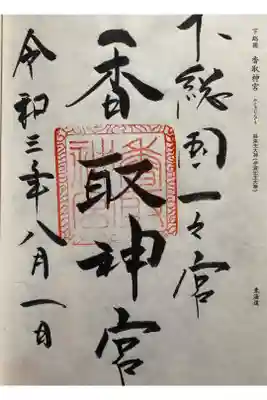 下総国 香取神宮
東海道
下総国一之宮
香取神宮
令和三年八月一日